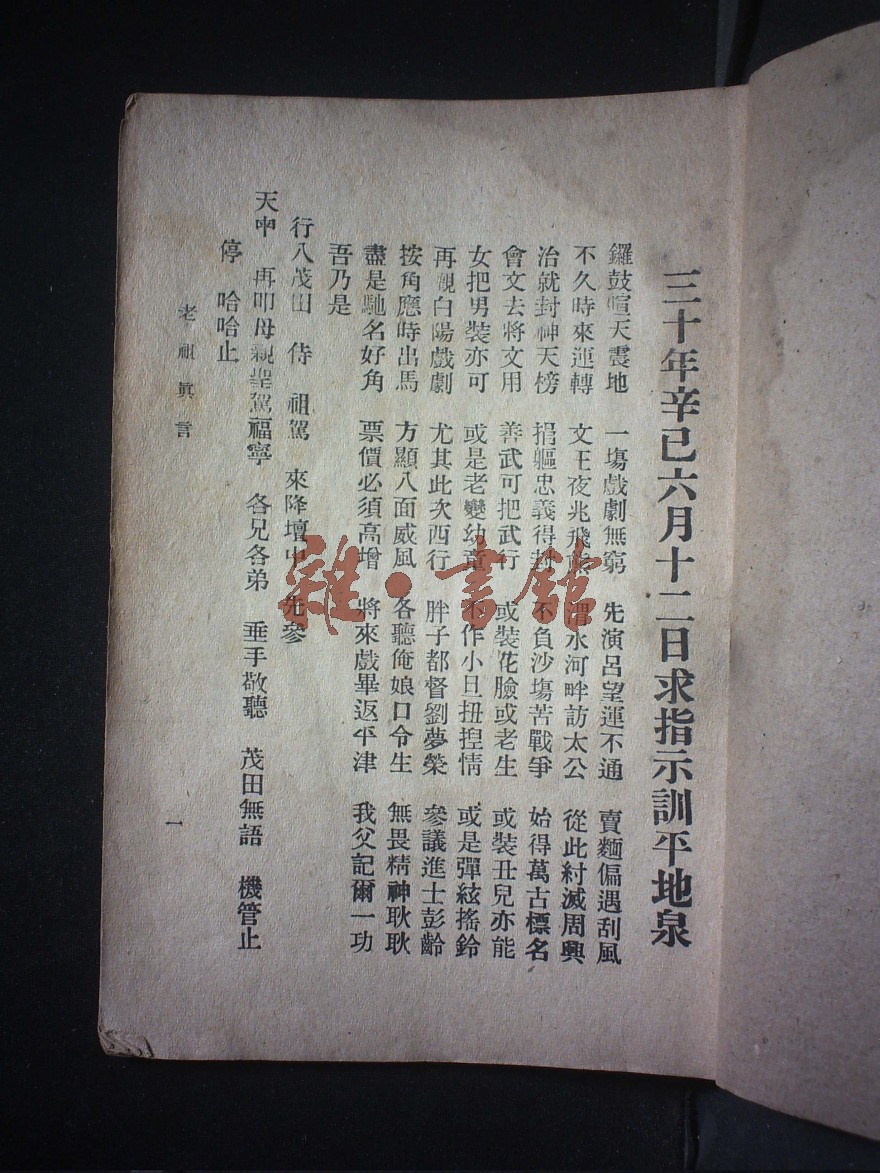 三十年辛巳六月十二日求指示訓平地泉
鑼鼓喧天震地　一塲戲劇無窮　先演呂望運不通　賣麵偏遇刮風
不久時來運轉　文王夜兆飛熊　渭水河畔訪太公　從此紂滅周興
治就封神天榜　捐軀忠義得封　不負沙塲苦戰爭　始得萬古標名
會文去將文用　善武可把武行　或裝花臉或老生　或裝丑兒亦能
女把男裝亦可　或是老變幼童　作小旦扭捏情　或是彈絃搖鈴
再觀白陽戲劇　尤其此次西行　胖子都督劉夢榮　參議進士彭齡
按角應時出馬　方顯八面威風　各聽俺娘口令生　無畏精神耿耿
盡是馳名好角　票價必須高增　將來戲畢返平津　我父記爾一功
吾乃是
行八茂田　侍　祖駕　來降壇中　先參
天中　再叩母親聖駕福寧　各兄各弟　垂手敬聽　茂田無語　機管止
停　哈哈止
老祖眞言
一
雜·書館